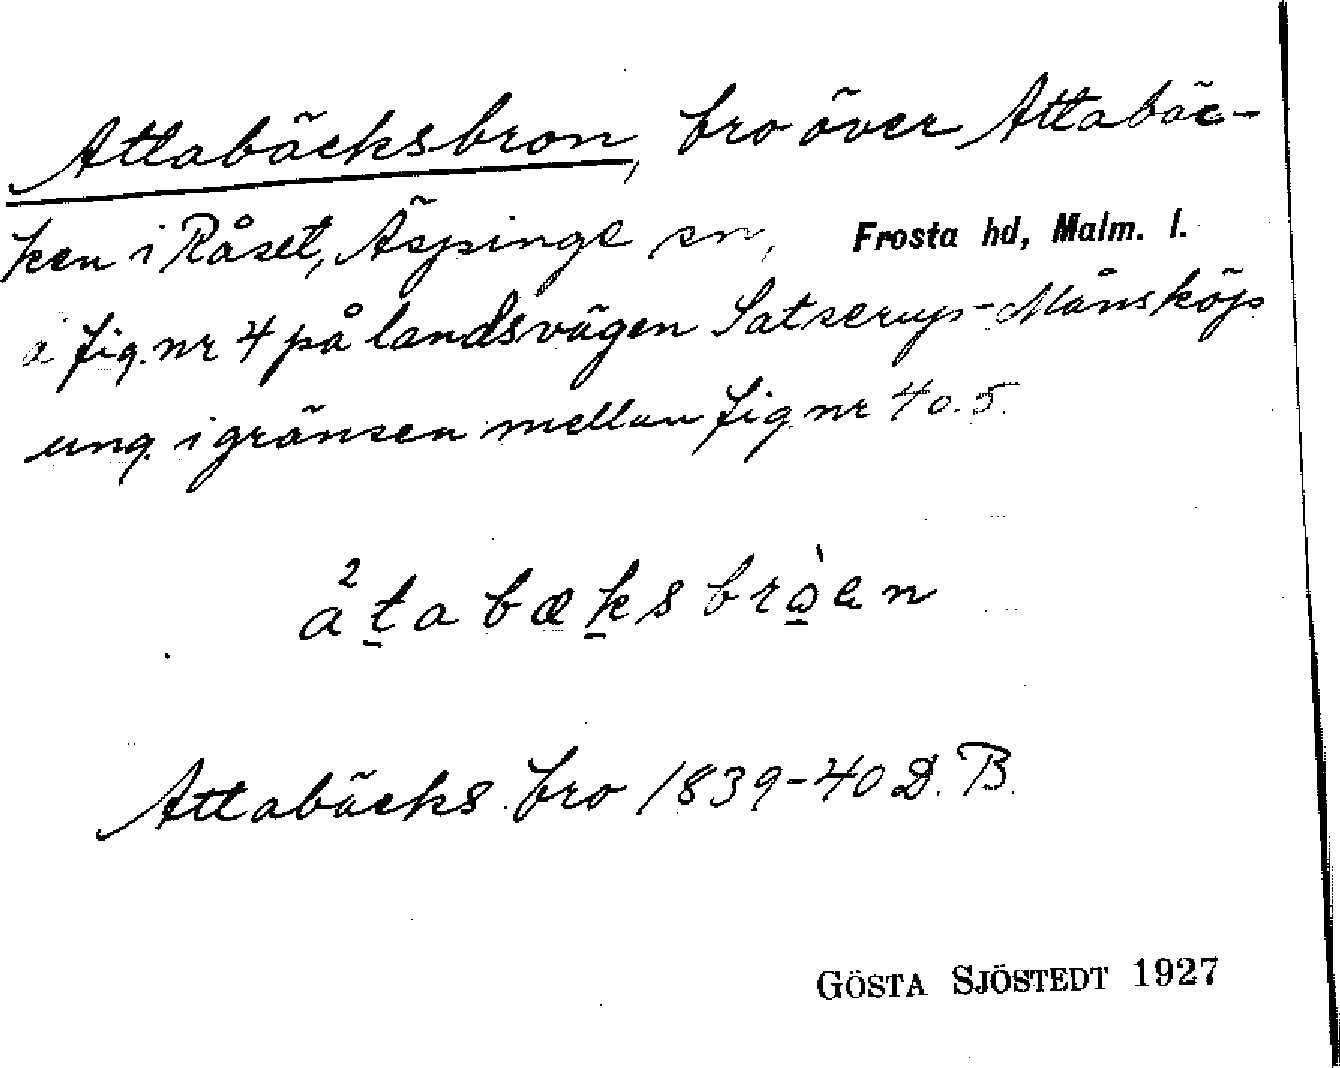 Attabäcksbron, bro över Attabäc-
ken i Råset, Äspinge sn, Frosta hd, Malm. l.
å fig. nr 4 på landsvägen Satserup-Månsköp
ung. i gränsen mellan fig nr 4 o. 5.
å²tabæksbròen
Attabäcks bro 1839-40 D. B.
GÖSTA SJÖSTEDT 1927